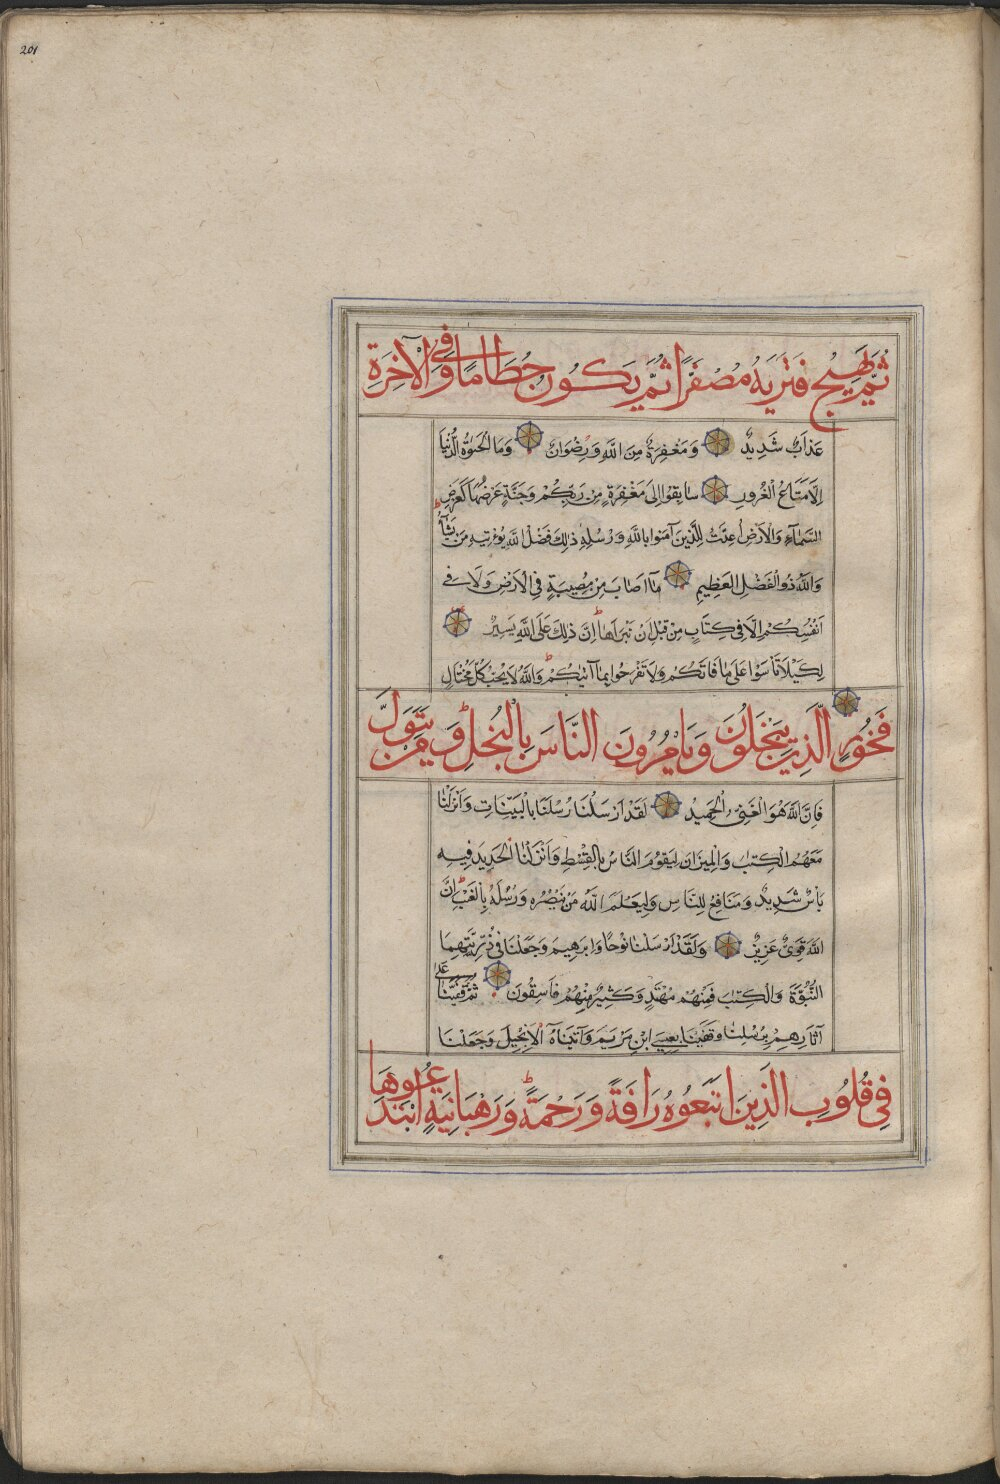 201
ثُمَّ يَهِيجُ فَتَرَيهُ مُصْفَرًّا ثُمَّ يَكُونُ حُطَامًا وَفِي الْآخِرَةِ
عَذَابٌ شَدِيدٌ وَمَغْفِرَةٌ مِنَ اللَّهِ وَرِضْوَانٌ وَمَا الْحَيٰوةُ الدُّنْيَا
اِلَّا مَتَاعُ الْغُرُورِ سَابِقُوا اِلَى مَغْفِرَةٍ مِنْ رَبِّكُمْ وَجَنَّةٍ عَرْضُهَا كَعَرْضِ
السَّمَآءِ وَالْاَرْضِ اُعِدَّتْ لِلَّذِينَ آمَنُوا بِاللَّهِ وَرُسُلِهِ ذٰلِكَ فَضْلُ اللَّهِ يُؤْتِيهِ مَنْ يَشَآءُ
وَاللَّهُ ذُو الْفَضْلِ الْعَظِيمِ مَا اَصَابَ مِنْ مُصِيبَةٍ فِي الْاَرْضِ وَلَا فِي
اَنْفُسِكُمْ اِلَّا فِي كِتَابٍ مِنْ قَبْلِ اَنْ نَبْرَاَهَا اِنَّ ذٰلِكَ عَلَى اللَّهِ يَسِيرٌ
لِكَيْلَا تَاْسَوْا عَلَى مَا فَاتَكُمْ وَلَا تَفْرَحُوا بِمَا آتٰيكُمْ وَاللَّهُ لَا يُحِبُّ كُلَّ مُخْتَالٍ
فَخُورٍ الَّذِينَ يَبْخَلُونَ وَيَاْمُرُونَ النَّاسَ بِالْبُخْلِ وَمَنْ يَتَوَلَّ
فَاِنَّ اللَّهَ هُوَ الْغَنِيُّ الْحَمِيدُ لَقَدْ اَرْسَلْنَا رُسُلَنَا بِالْبَيِّنَاتِ وَاَنْزَلْنَا
مَعَهُمُ الْكِتٰبَ وَالْمِيزَانَ لِيَقُومَ النَّاسُ بِالْقِسْطِ وَاَنْزَلْنَا الْحَدِيدَ فِيهِ
بَاْسٌ شَدِيدٌ وَمَنَافِعُ لِلنَّاسِ وَلِيَعْلَمَ اللَّهُ مَنْ يَنْصُرُهُ وَرُسُلَهُ بِالْغَيْبِ اِنَّ
اللَّهَ قَوِيٌّ عَزِيزٌ وَلَقَدْ اَرْسَلْنَا نُوحًا وَاِبْرَهِيمَ وَجَعَلْنَا فِي ذُرِّيَّتِهِمَا
النُّبُوَّةَ وَالْكِتٰبَ فَمِنْهُمْ مُهْتَدٍ وَكَثِيرٌ مِنْهُمْ فَاسِقُونَ ثُمَّ قَفَّيْنَا عَلَى
آثَارِهِمْ بِرُسُلِنَا وَقَفَّيْنَا بِعِيسَى ابْنِ مَرْيَمَ وَآتَيْنَاهُ الْاِنْجِيلَ وَجَعَلْنَا
فِي قُلُوبِ الَّذِينَ اتَّبَعُوهُ رَاْفَةً وَرَحْمَةً وَرَهْبَانِيَةً ابْتَدَعُوهَا